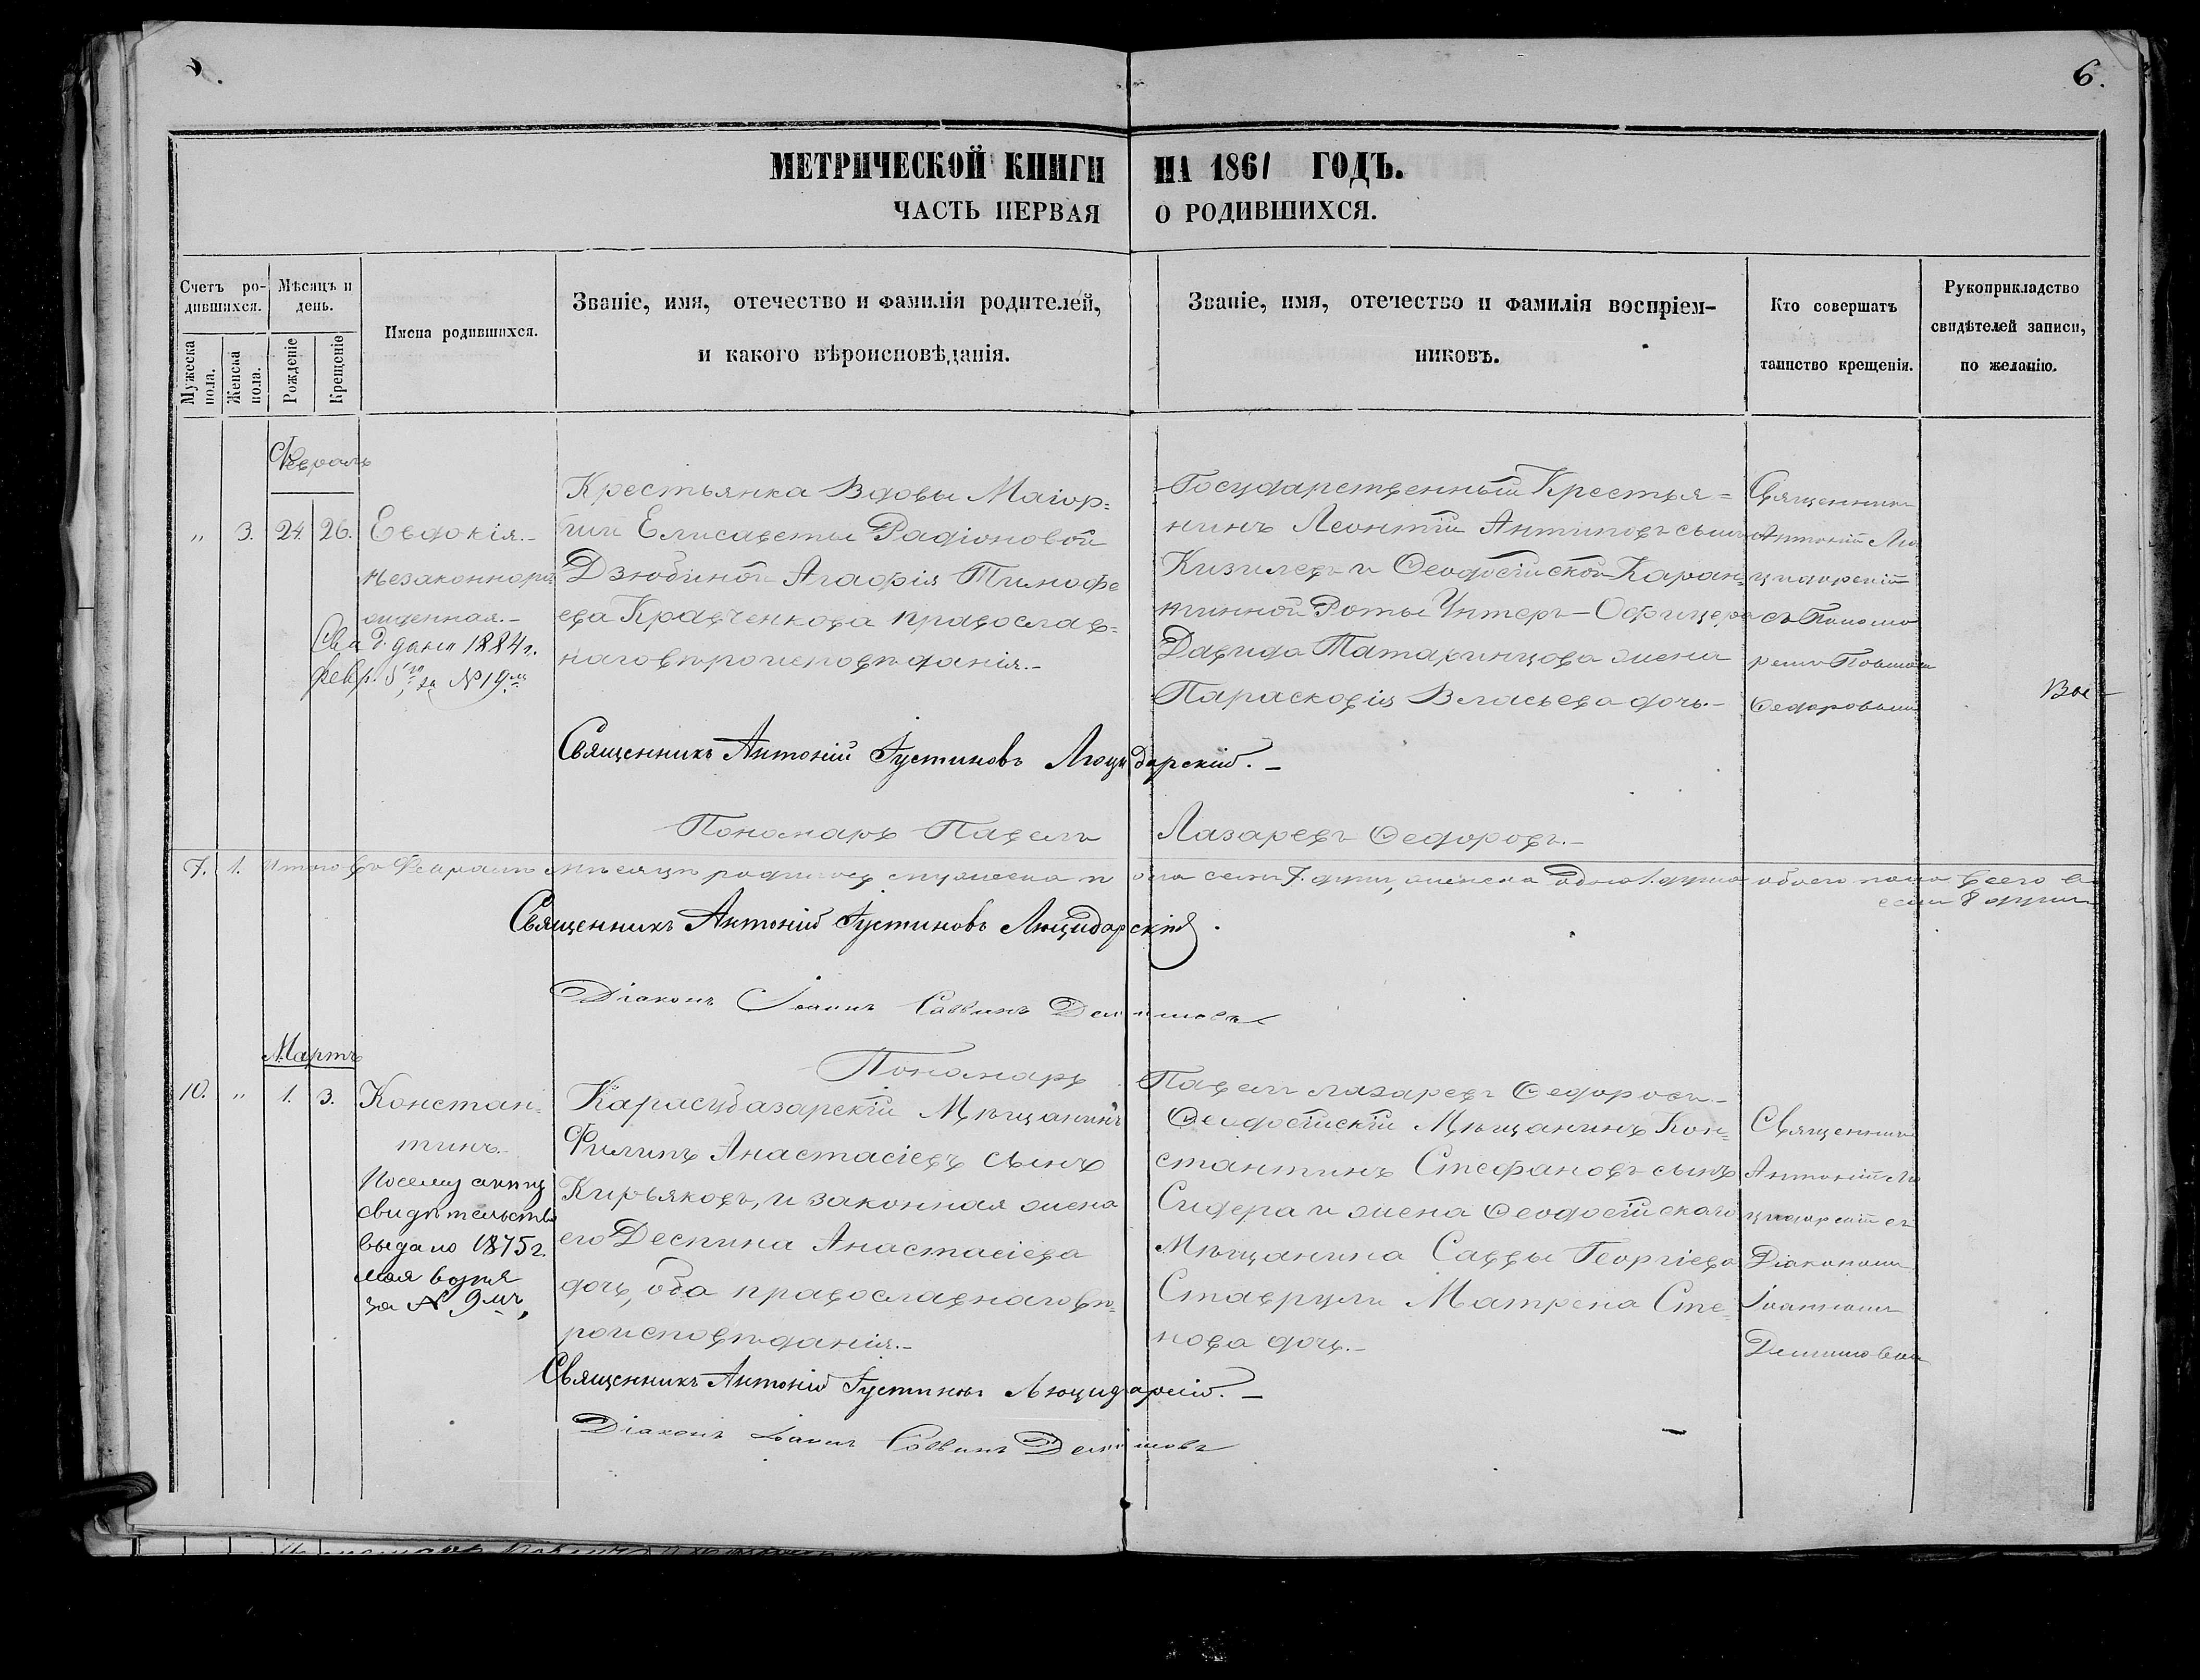 6.
МЕТРИЧЕСКОЙ КНИГИ НА 1861 ГОДЪ.
ЧАСТЬ ПЕРВАЯ О РОДИВШИХСЯ.
Счетъ ро-
дившихся.
Мужеска пола.
Женска пола.
Мѣсяцъ и
день.
Рожденіе
Крещеніе
Имена родившихся.
Званіе, имя, отечество и фамилія родителей,
и какого вѣроисповѣданія.
Званіе, имя, отечество и фамилія воспріем-
никовъ.
Кто совершатъ
таинство крещенія.
Рукоприкладство
свидѣтелей записи,
по желанію.
Февраль
„ 3. 24. 26.
Евдокія.-
незаконнорож
денная.-
дано 1884 г.
февр. 5го за № 19мъ
Крестьянка Вдовы Маіор-
ши Елисаветы Радіоновой
Дзюбиной Агафія Тимофе
ева Кравченкова православ-
наго вѣроисповѣданія.-
Государственный Крестья-
нинъ Леонтій Антиповъ сынъ
Кизилевъ и Ѳеодосійской Каран-
тинной Роты Унтеръ-Офицера
Давида Татаринцова жена
Парасковія Власьева дочь.-
Священникъ
Антоній Лю
цидарскій
съ Пономо
ремъ Павломъ
Ѳедоровымъ
Священникъ Антоній Іустиновъ Люцидарскій.-
Пономарь Павелъ Лазаревъ Ѳедоровъ.-
7. 1. Итого въ Февралѣ мѣсяцѣ родилось мужеска пола семь 7. душъ, женска одна 1. душа обоего пола всего во
семь 8 душъ
Священникъ Антоній Іустиновъ Люцидарскій.
Діаконъ Іоаннъ Саввинъ
Пономарь Павелъ Лазаревъ Ѳедоровъ.-
Мартъ
10. „ 1. 3.
Констан-
тинъ.-
По сему акту
свидѣтельство
выдано 1875 г.
мая
за № 9мъ,
Карасубазарскій Мѣщанинъ
Филипъ Анастасіевъ сынъ
Кирьяковъ, и законная жена
его Деспина Анастасіева
дочь, оба православнаго вѣ-
роисповѣданія.-
Ѳеодосійскій Мѣщанинъ Кон-
стантинъ Стефановъ сынъ
Сидера и жена Ѳеодосійскаго
Мѣщанина Саввы Георгіева
Ставрули Матрена Сте-
нова дочь.-
Священникъ
Антоній Лю
цидарскій съ
Діакономъ
Іоанномъ
Священникъ Антоній Іустиновъ Люцидарскій.-
Діаконъ Іоаннъ Саввинъ